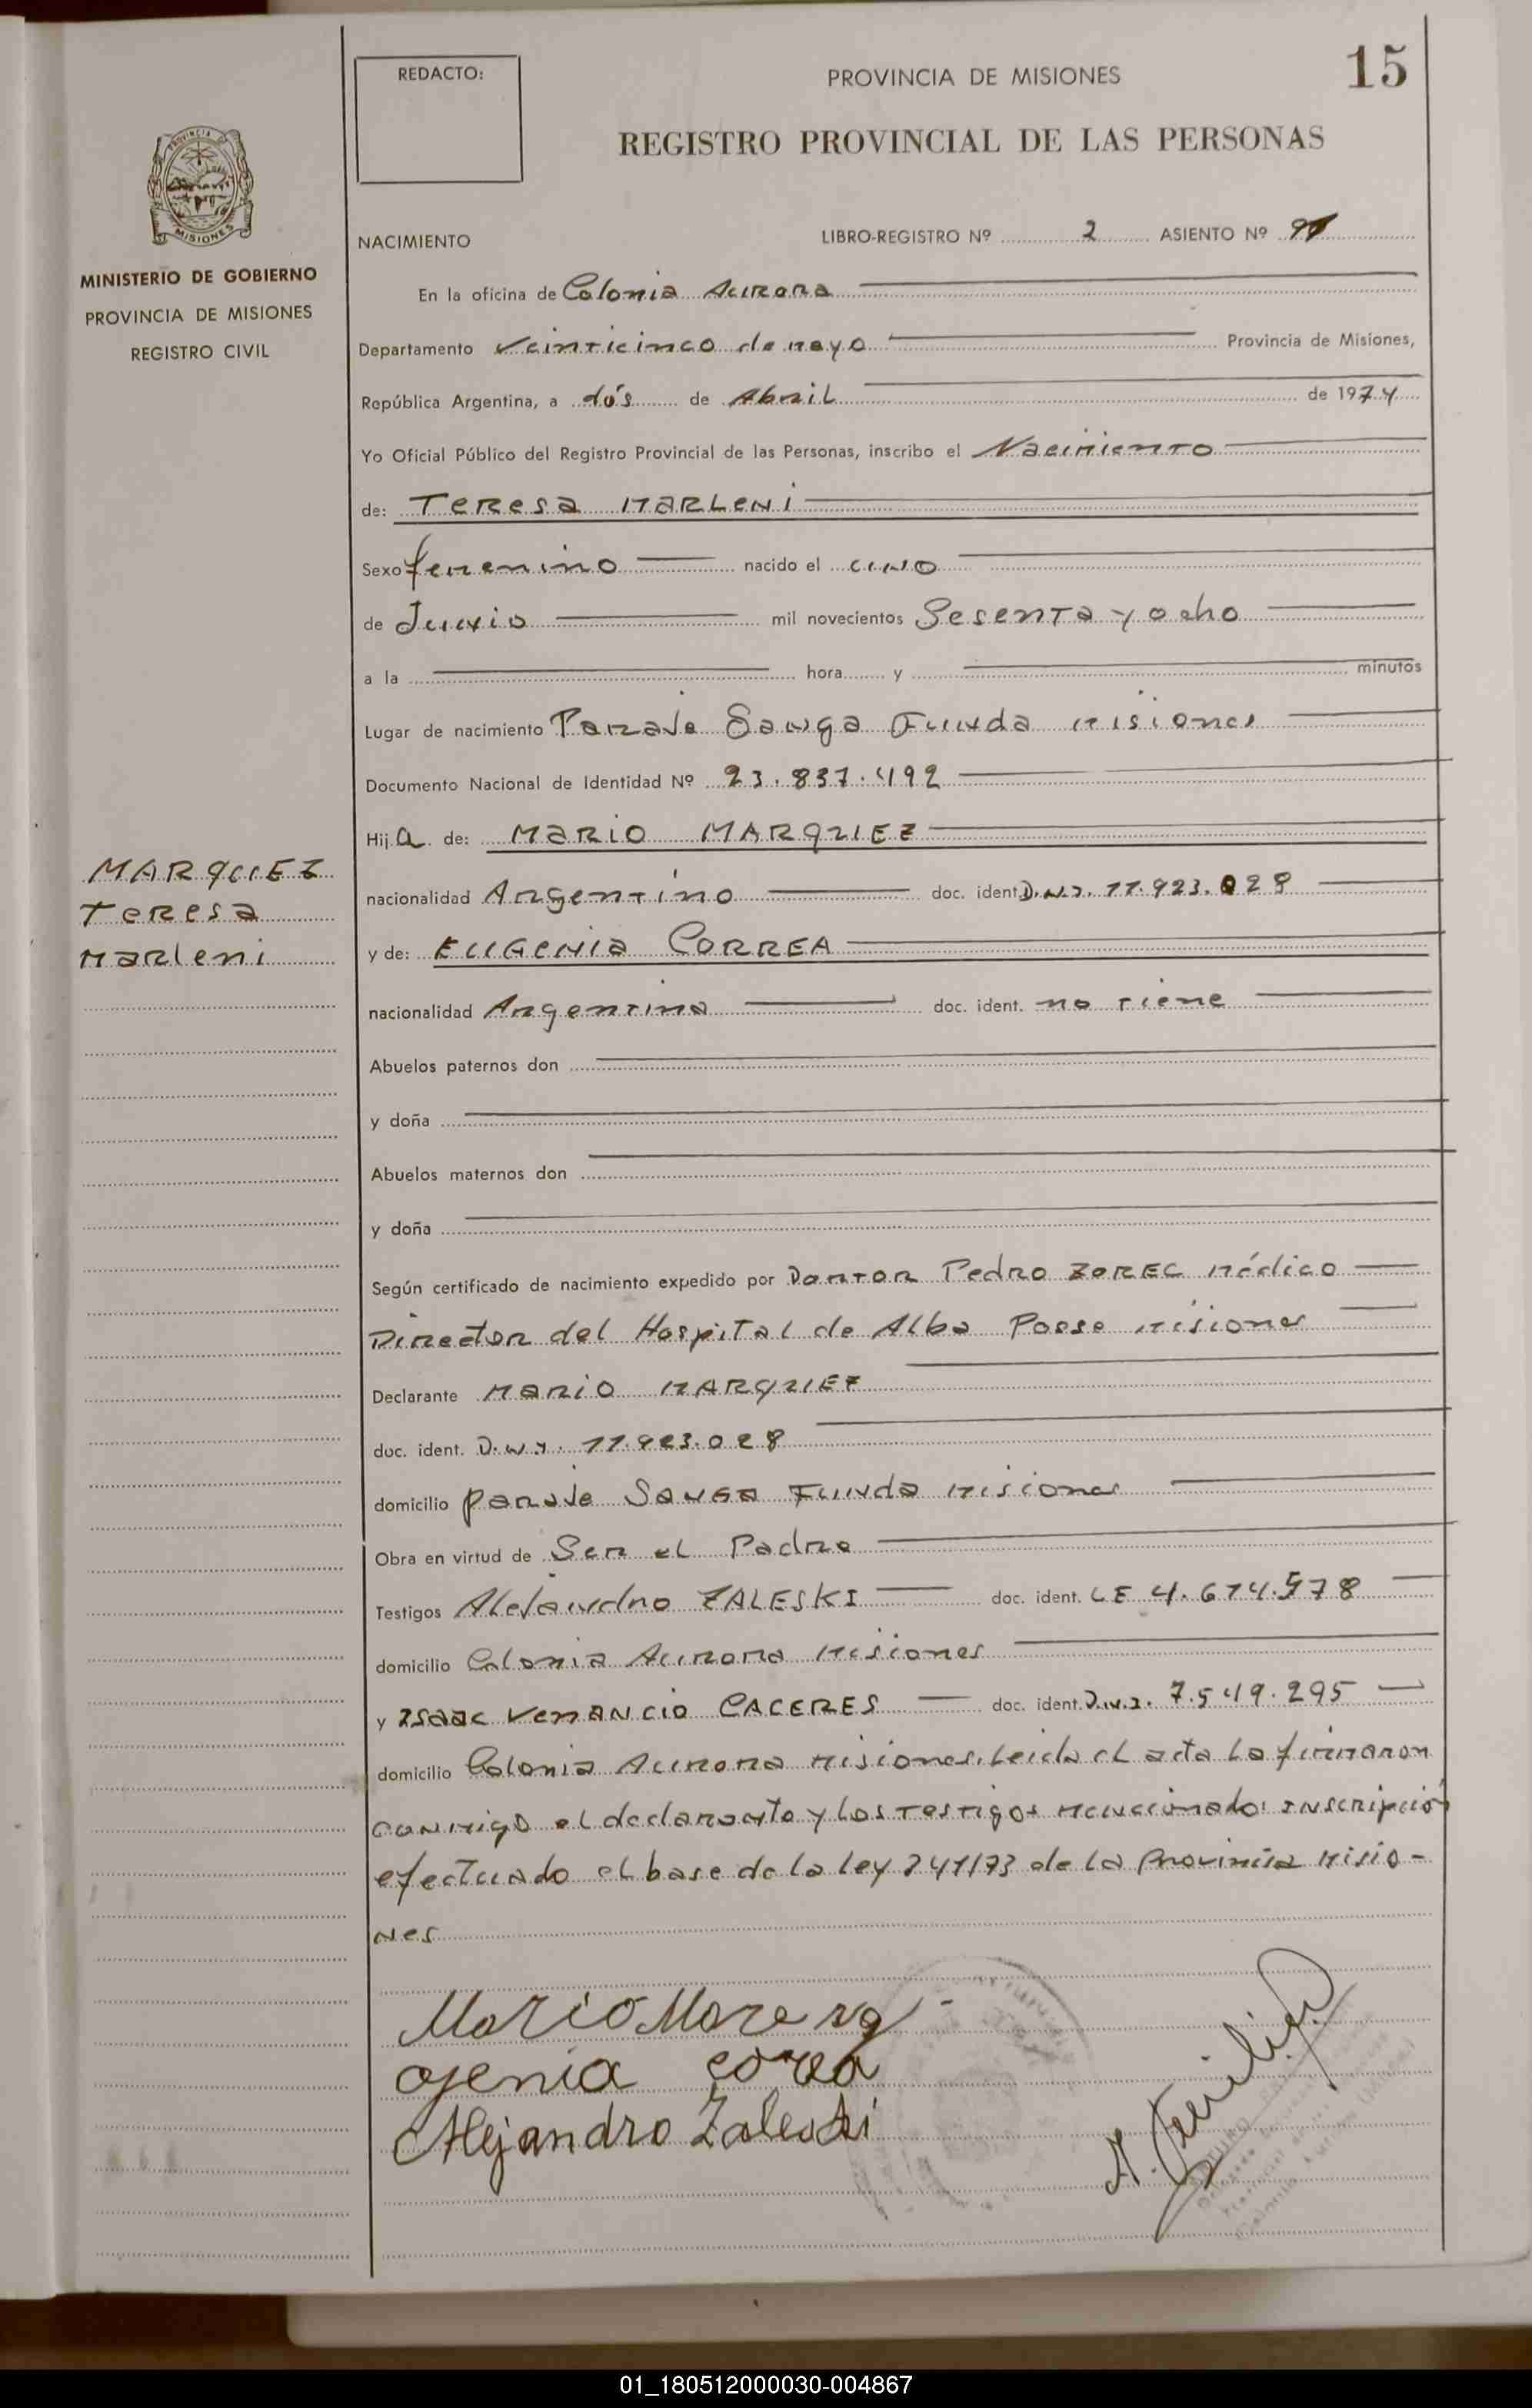 REDACTO:
PROVINCIA DE MISIONES
15
REGISTRO PROVINCIAL DE LAS PERSONAS
PROVINCIA DE
MISIONES
MINISTERIO DE GOBIERNO
PROVINCIA DE MISIONES
REGISTRO CIVIL
NACIMIENTO
LIBRO-REGISTRO Nº 2 ASIENTO Nº
En la oficina de Colonia Aurora
Departamento Veinticinco de mayo Provincia de Misiones,
República Argentina, a dós de Abril de 1974
Yo Oficial Público del Registro Provincial de las Personas, inscribo el Nacimiento
de: Teresa MARLeNi
Sexo femenino nacido el
de Junio mil novecientos Sesenta y ocho
a la hora y minutos
Lugar de nacimiento Paraje Sanga Funda misiones
Documento Nacional de Identidad Nº 23.837.492
Hija de: MARIO MARQUEZ
nacionalidad Argentino doc. ident. D.N.I. 11.923.028
y de: EUGENIA CORREA
nacionalidad Argentina doc. ident. no tiene
Abuelos paternos don
y doña
Abuelos maternos don
y doña
Según certificado de nacimiento expedido por Pedro ZOREC médico
Director del Hospital de Alba Posse misiones
Declarante MARIO MARQUEZ
doc. ident. D.N.I. 11.923.028
domicilio paraje Sanga Funda misiones
Obra en virtud de Ser el Padre
Testigos Alejandro ZALESKI doc. ident. LE 4.674.578
domicilio Colonia Aurora misiones
y Isaac Venancio CACERES doc. ident. D.N.I. 7.549.295
domicilio Colonia Aurora misiones. Leida el acta la firmaron
conmigo el declarante y los testigos mencionado: inscripción
efectuado el base de la ley 241/73 de la Provincia Misio-
nes
MARQUEZ
Teresa
Marleni
Mario
ogenia corea
Alejandro Zaleski
01_180512000030-004867